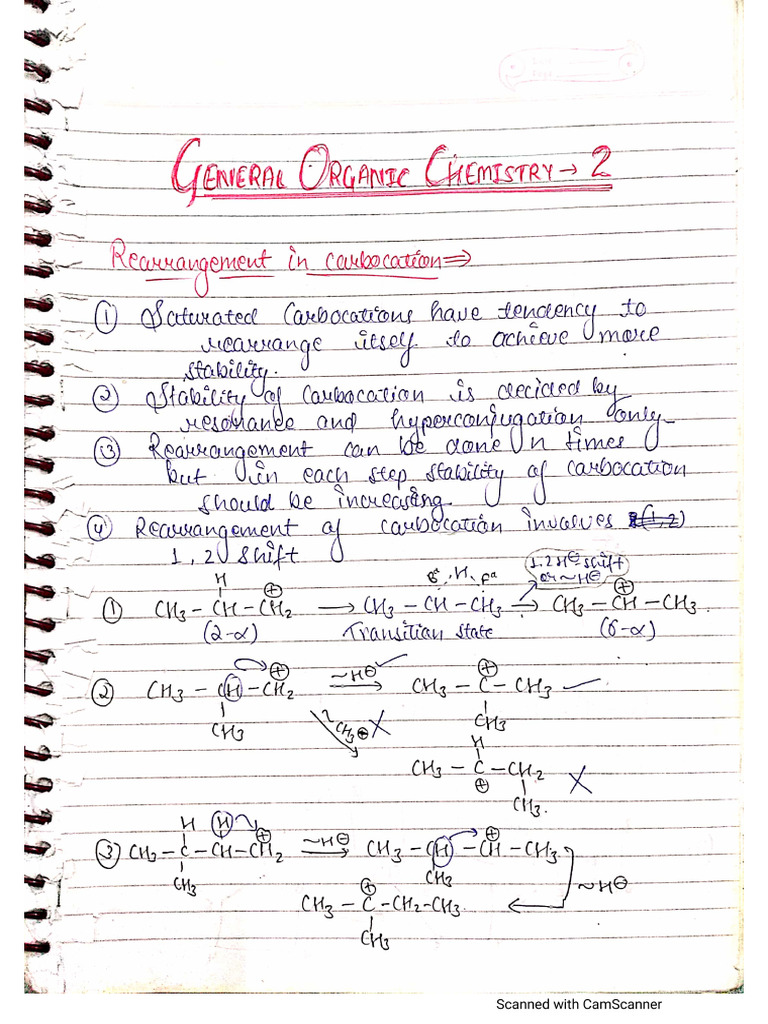 GENERAL ORGANIC CHEMISTRY → 2
Rearrangement in carbocation ⇒
① Saturated Carbocations have tendency to
rearrange itself to achieve more
stability.
② Stability of carbocation is decided by
resonance and hyperconjugation only
③ Rearrangement can be done n times
but in each step stability of carbocation
should be increasing.
④ Rearrangement of carbocation involves
1, 2 shift
1,2 H⊖ shift
or ~H⊖
H ⊕ H ⊕
① CH₃ – CH – CH₂ → CH₃ – CH – CH₃ → CH₃ – CH – CH₃.
(2-α) Transition state (6-α)
② CH₃ – CH – CH₂ ⊕ ~H⊖ ✓ CH₃ – C ⊕ – CH₃ ✓
CH₃ ~CH₃⊕ X CH₃
H
CH₃ – C – CH₂ X
⊕ CH₃.
H H ⊕ ~H⊖ ⊕
③ CH₃ – C – CH – CH₂ → CH₃ – CH – CH – CH₃
CH₃ CH₃ ~H⊖
⊕
CH₃ – C – CH₂ – CH₃. ←
CH₃
Scanned with CamScanner